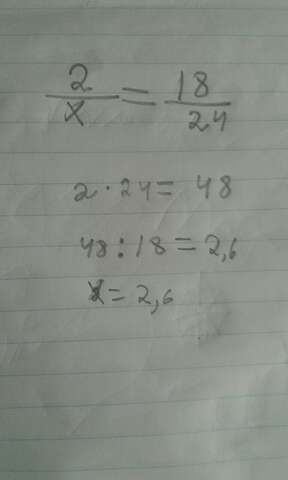 2/x = 18/24
2 · 24 = 48
48 : 18 = 2,6
x = 2,6